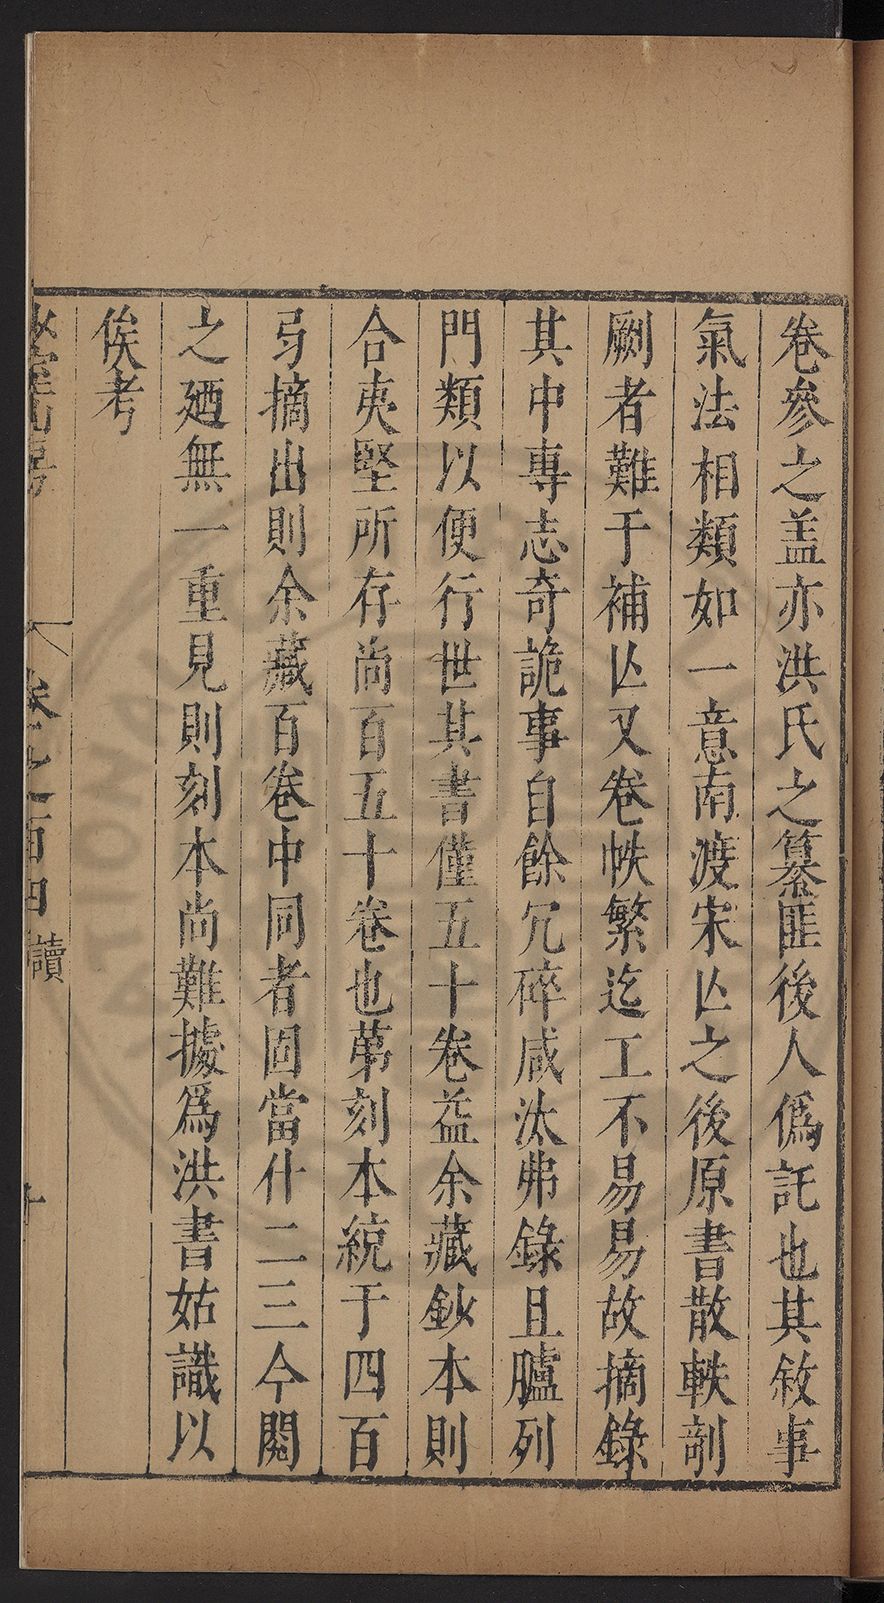 卷參之盖亦洪氏之纂匪後人僞託也其敘事
氣法相類如一意南渡宋亾之後原書散軼剞
劂者難于補亾又卷帙繁迄工不易易故摘錄
其中專志奇詭事自餘冗碎咸汰弗錄且臚列
門類以便行世其書僅五十卷益余藏鈔本則
合夷堅所存尚百五十卷也第刻本統于四百
弓摘出則余藏百卷中同者固當什二三今閱
之廼無一重見則刻本尚難據爲洪書姑識以
俟考
卷之百四 讀 十